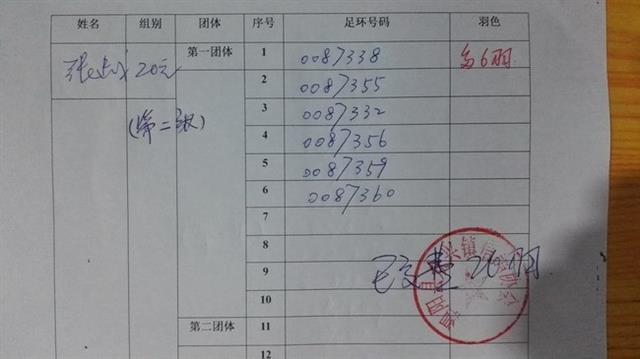 姓名 组别 团体 序号 足环号码 羽色
张 20元 第一团体 1 0087338
2 0087355
(第二级) 3 0087332
4 0087356
5 0087359
6 0087360
7
8
9
10
第二团体 11
12